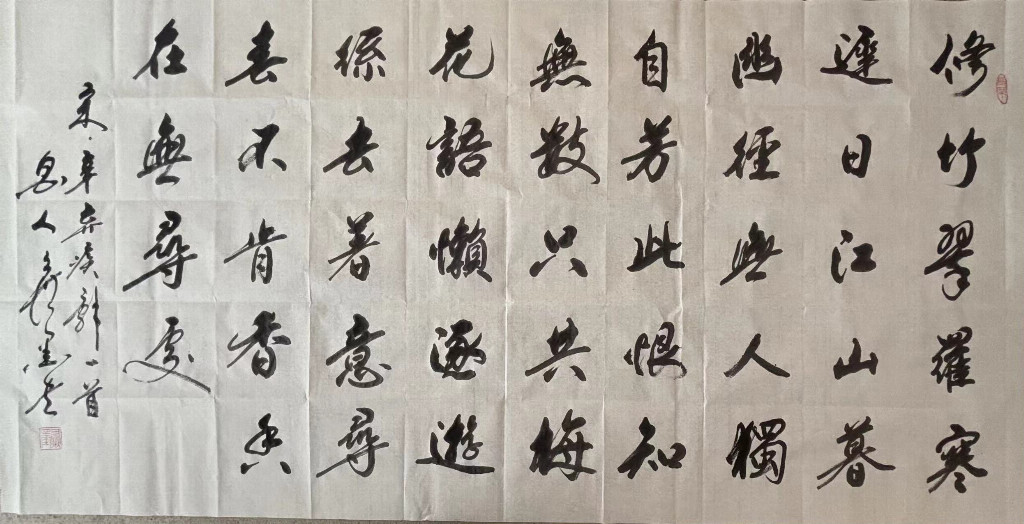 修竹翠羅寒
遲日江山暮
幽徑無人獨
自芳此恨知
無數只共梅
花語懶逐遊
絲去著意尋
春不肯香香
在無尋處
宋·辛弃疾詞一首